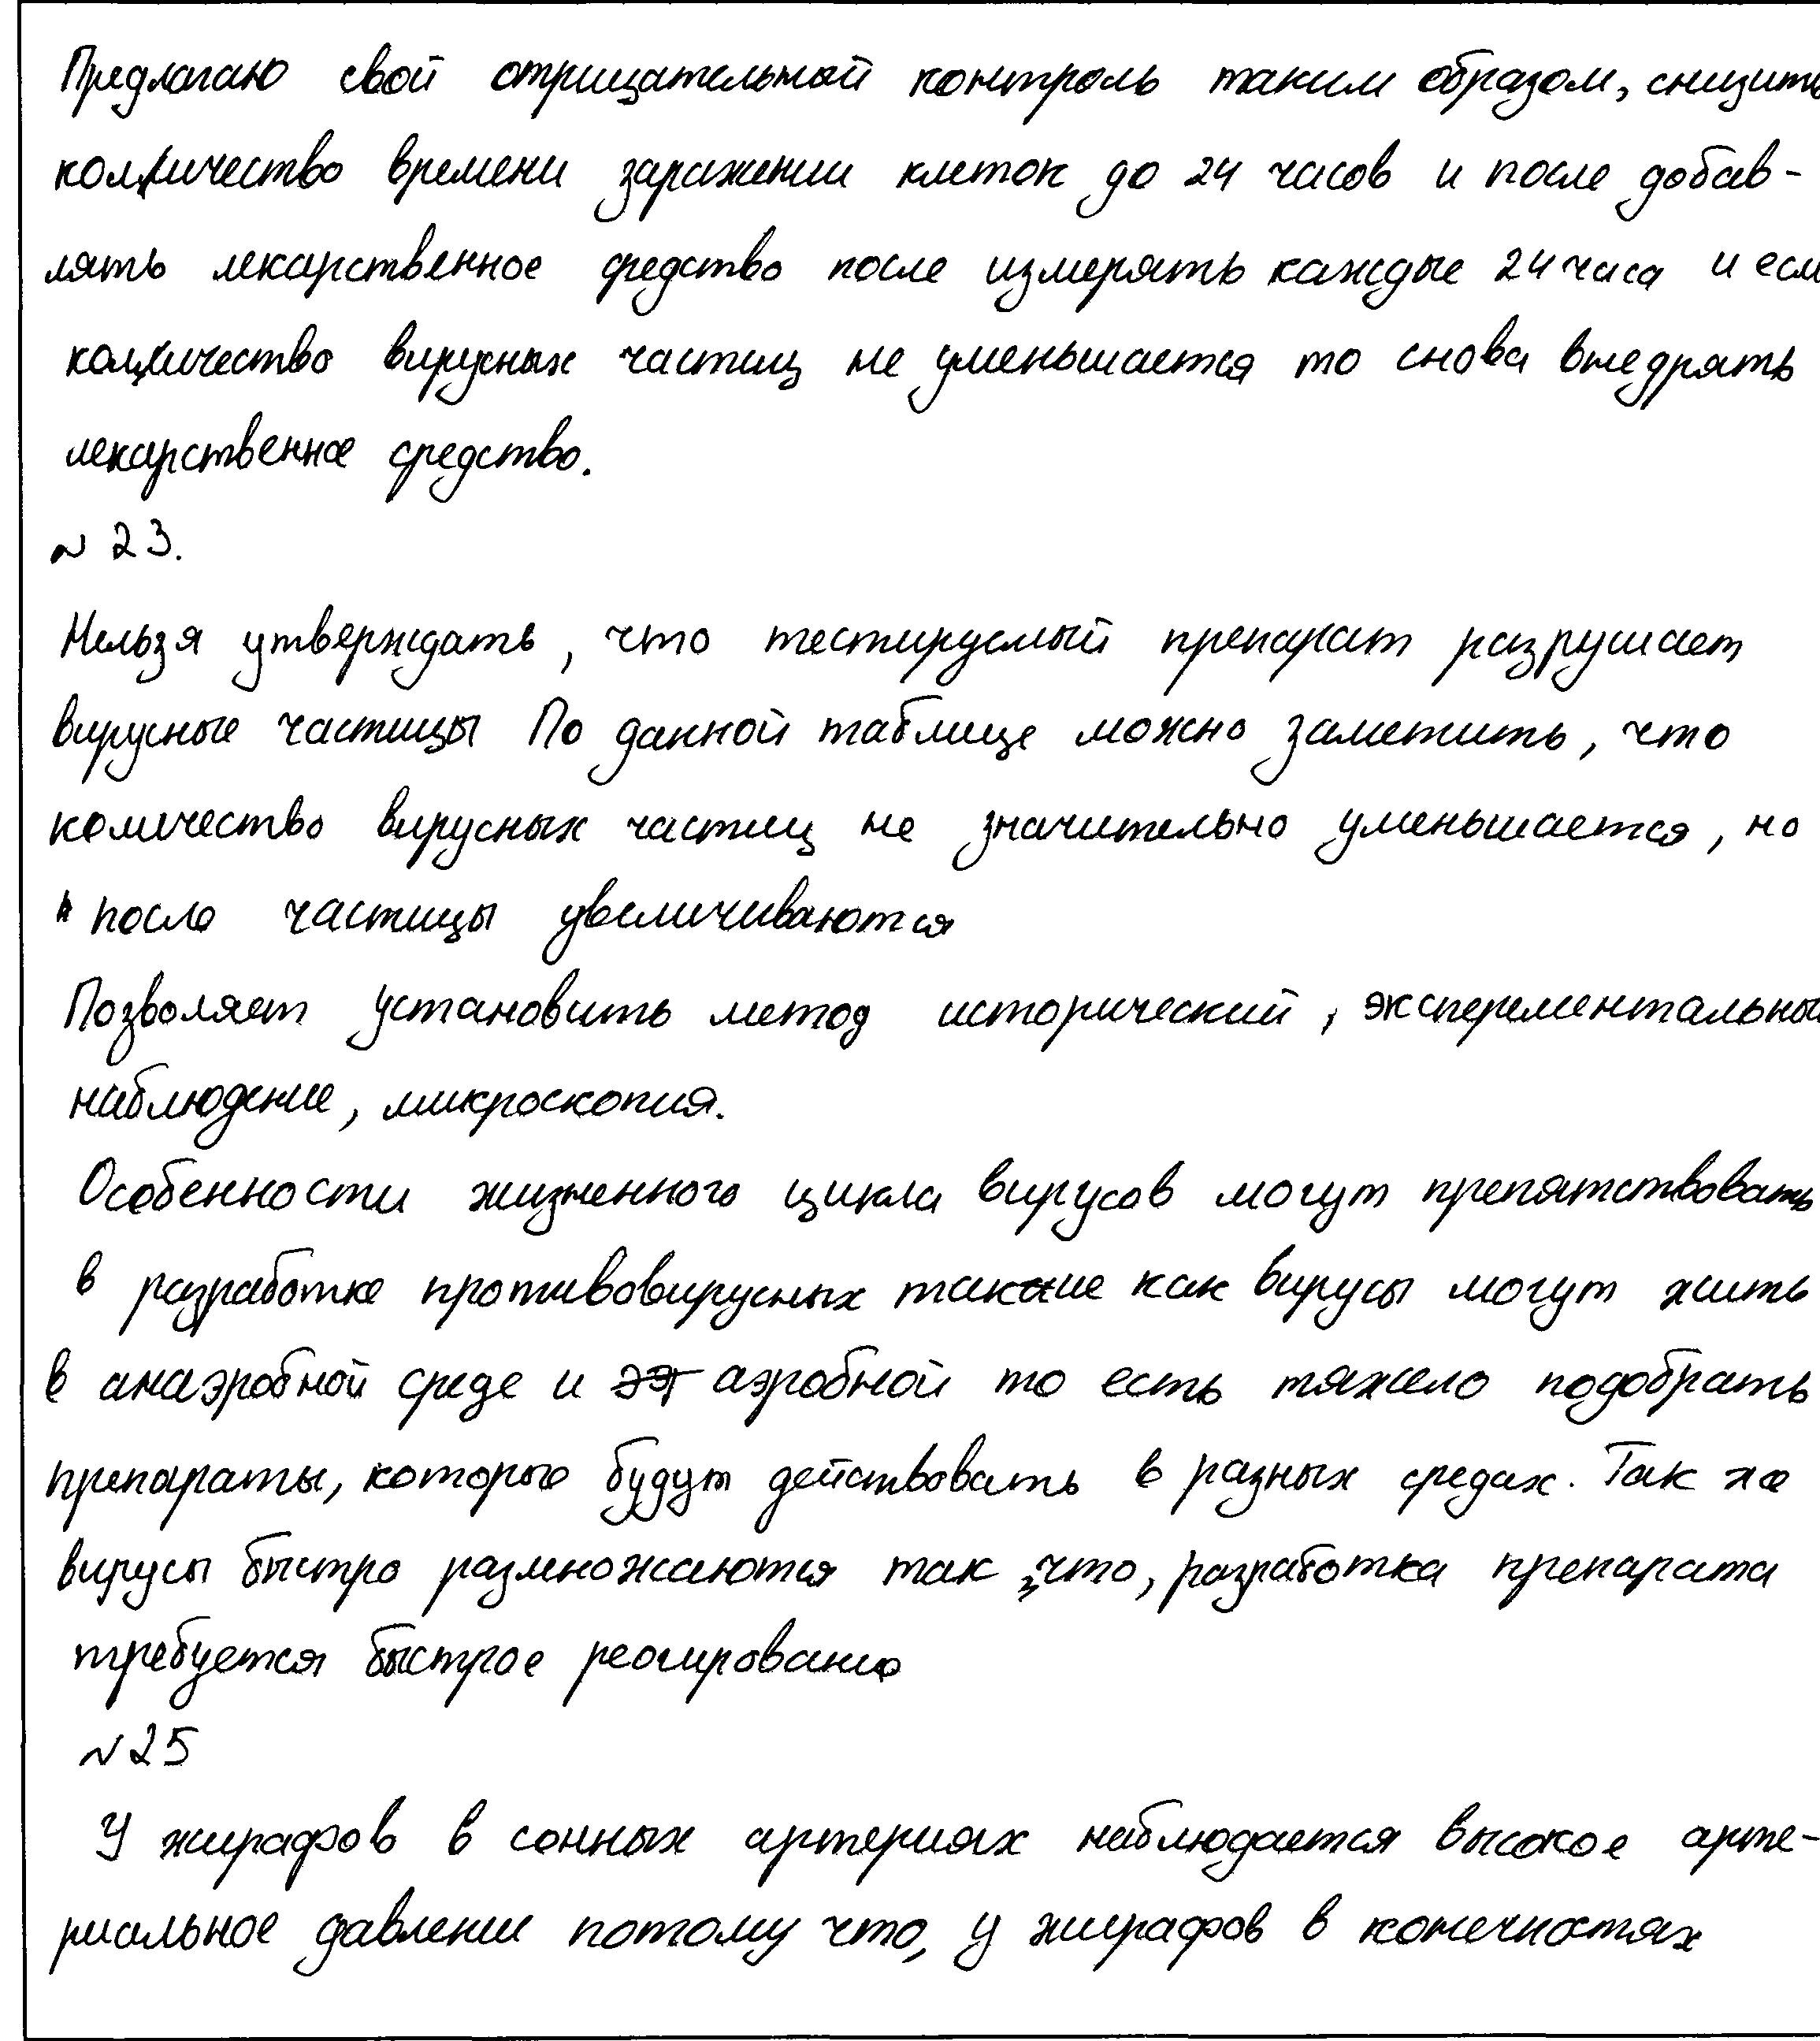 Предлагаю свой отрицательный контроль таким образом, снизить
количество времени заражении клеток до 24 часов и после добав-
лять лекарственное средство после измерять каждые 24 часа и если
количество вирусных частиц не уменьшается то снова внедрять
лекарственное средство.
№ 23.
Нельзя утверждать, что тестируемый препарат разрушает
вирусные частицы По данной таблице можно заметить, что
количество вирусных частиц не значительно уменьшается, но
после частицы увеличиваются
Позволяет установить метод исторический, эксперементальный
наблюдение, микроскопия.
Особенности жизненного цикла вирусов могут препятствовать
в разработке противовирусных такие как вирусы могут жить
в анаэробной среде и аэробной то есть тяжело подобрать
препараты, которые будут действовать в разных средах. Так же
вирусы быстро размножаются так что, разработка препарата
требуется быстрое реогирование
№ 25
У жирафов в сонных артериях наблюдается высокое арте-
риальное давлении потому что, у жирафов в конечностях